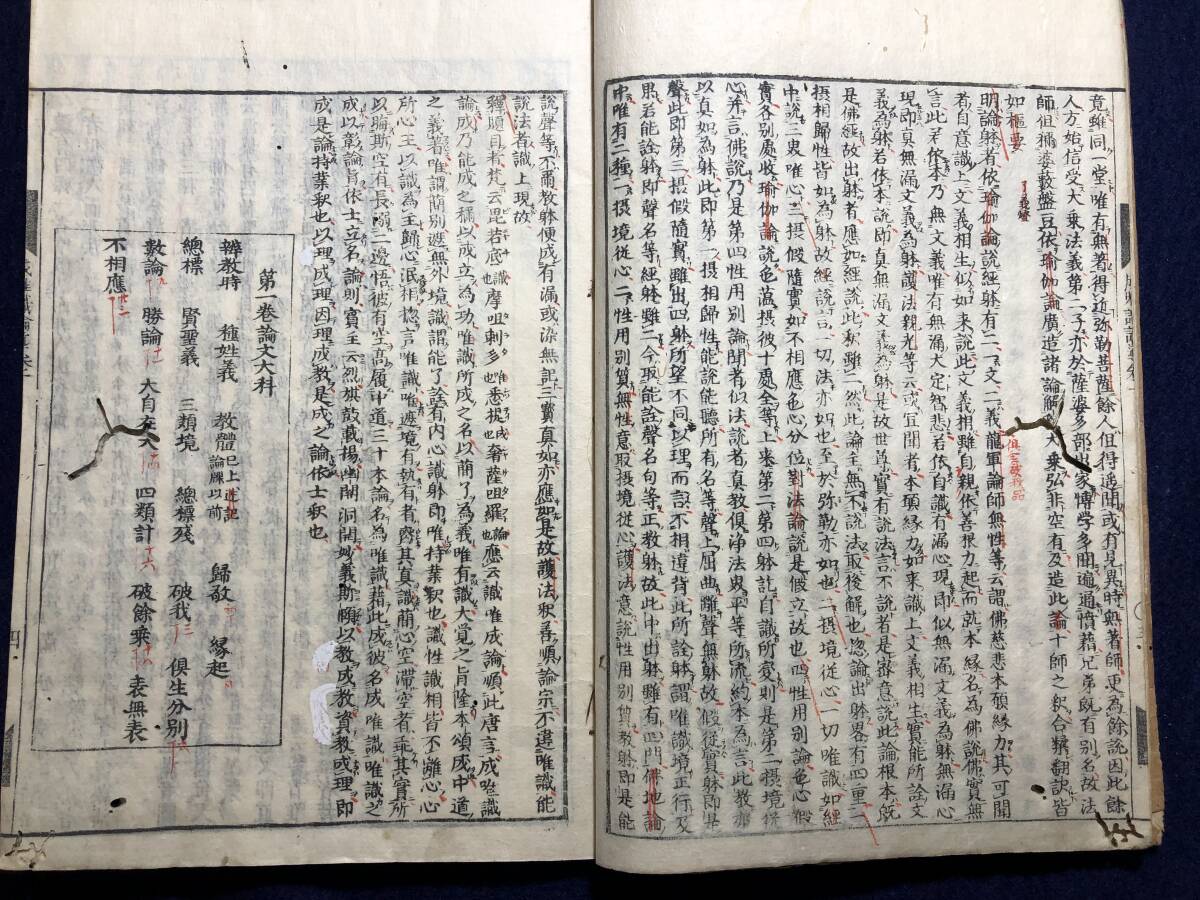 竟雖同一堂唯有無著得近弥勒菩薩餘人但得遥聞或有見異時無著師更為餘說因此餘
人方始信受大乗法義第二子亦於薩婆多部出家博學多聞遍通憤藉兄弟既有別名故法
師但稱婆藪盤豆依瑜伽論廣造諸論解大乗弘非空有及造此論十師之釈合糅翻訳皆
如樞要
明論躰者依瑜伽論說經躰有二一文二義龍軍論師無性等云謂佛慈悲本願縁力其可聞
者自意識上文義相生似如来說此文義相雖自親依善根力起而就本縁名為佛說佛實無
言此若依本乃無文義唯有無漏大定智悲若依自識有漏心現即似無漏文義為躰無漏心
現即真無漏文義為躰護法親光等云或宜聞者本願縁力如来識上文義相生實能所詮文
義為躰若依本說即真無漏文義為躰是故世尊實有說法言不說者是密意說此論根本既
是佛經故出躰者應如經說此釈雖二然此論主無不說法取後解也惣論出躰畧有四重一
摂相歸性皆如為躰故經說言一切法亦如也至於弥勒亦如也二摂境従心一切唯識如經
中說三界唯心三摂假隨實如不相應色心分位對法論說是假立故也四性用別論色心假
實各別處收瑜伽論說色蘊摂彼十處全等上来第二第四躰託自識所変則是第二摂境従
心并言佛說乃是第四性用別論聞者似法說者真教俱浄法界平等所流約本為言此教亦
以真如為躰此即第一摂相歸性能說能聽所有名等聲上屈曲離聲無躰故假従實躰即是
聲此即第三摂假隨實雖出四躰所望不同以理而言不相違背此所詮躰謂唯識境正行及
果若能詮躰即聲名等經躰雖二今取能詮聲名句等正教躰故此中出躰雖有四門佛地論
中唯有二種一摂境従心二性用別質無性意取摂境従心護法意說性用別質教躰即是能
說聲等不爾教躰便成有漏或染無記三寳真如亦應如是故護法釈善順論宗不違唯識能
說法者識上現故
釋題目者梵云毘若底也識摩呾剌多也唯悉提也成奢薩呾羅也論應云識唯成論順此唐言成唯識
論成乃能成之稱以成立為功唯識所成之名以簡了為義唯有識大覚之旨隆本頌成中道
之義著唯謂簡別遮無外境識謂能了詮有内心識躰即唯持業釈也識性識相皆不離心心
所心王以識為主歸心泯相惣言唯識唯遮境有執有者喪其真識簡心空滞空者乖其實所
以晦斯空有長溺二邊悟彼有空高履中道三十本論名為唯識藉此成彼名成唯識唯識之
成以彰論旨依士立名論則賓主云烈旗鼓載揚幽關洞開妙義斯暢以教成教資教成理即
成是論持業釈也以理成理因理成教是成之論依士釈也
第一巻論文大科
辨教時　種姓義　教體已上述記論牒以前　歸敬　縁起
總標　賢聖義　三類境　總標殘　破我　俱生分別
數論　勝論　大自在天　四類計　破餘乗　表無表
不相應
四